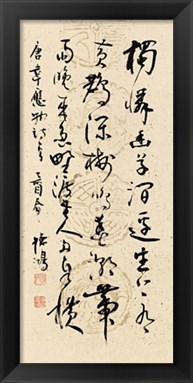 獨憐幽草澗邊生上有
黃鸝深樹鳴春潮帶
雨晚來急野渡無人舟自橫
唐韋應物詩 酉春
鴻